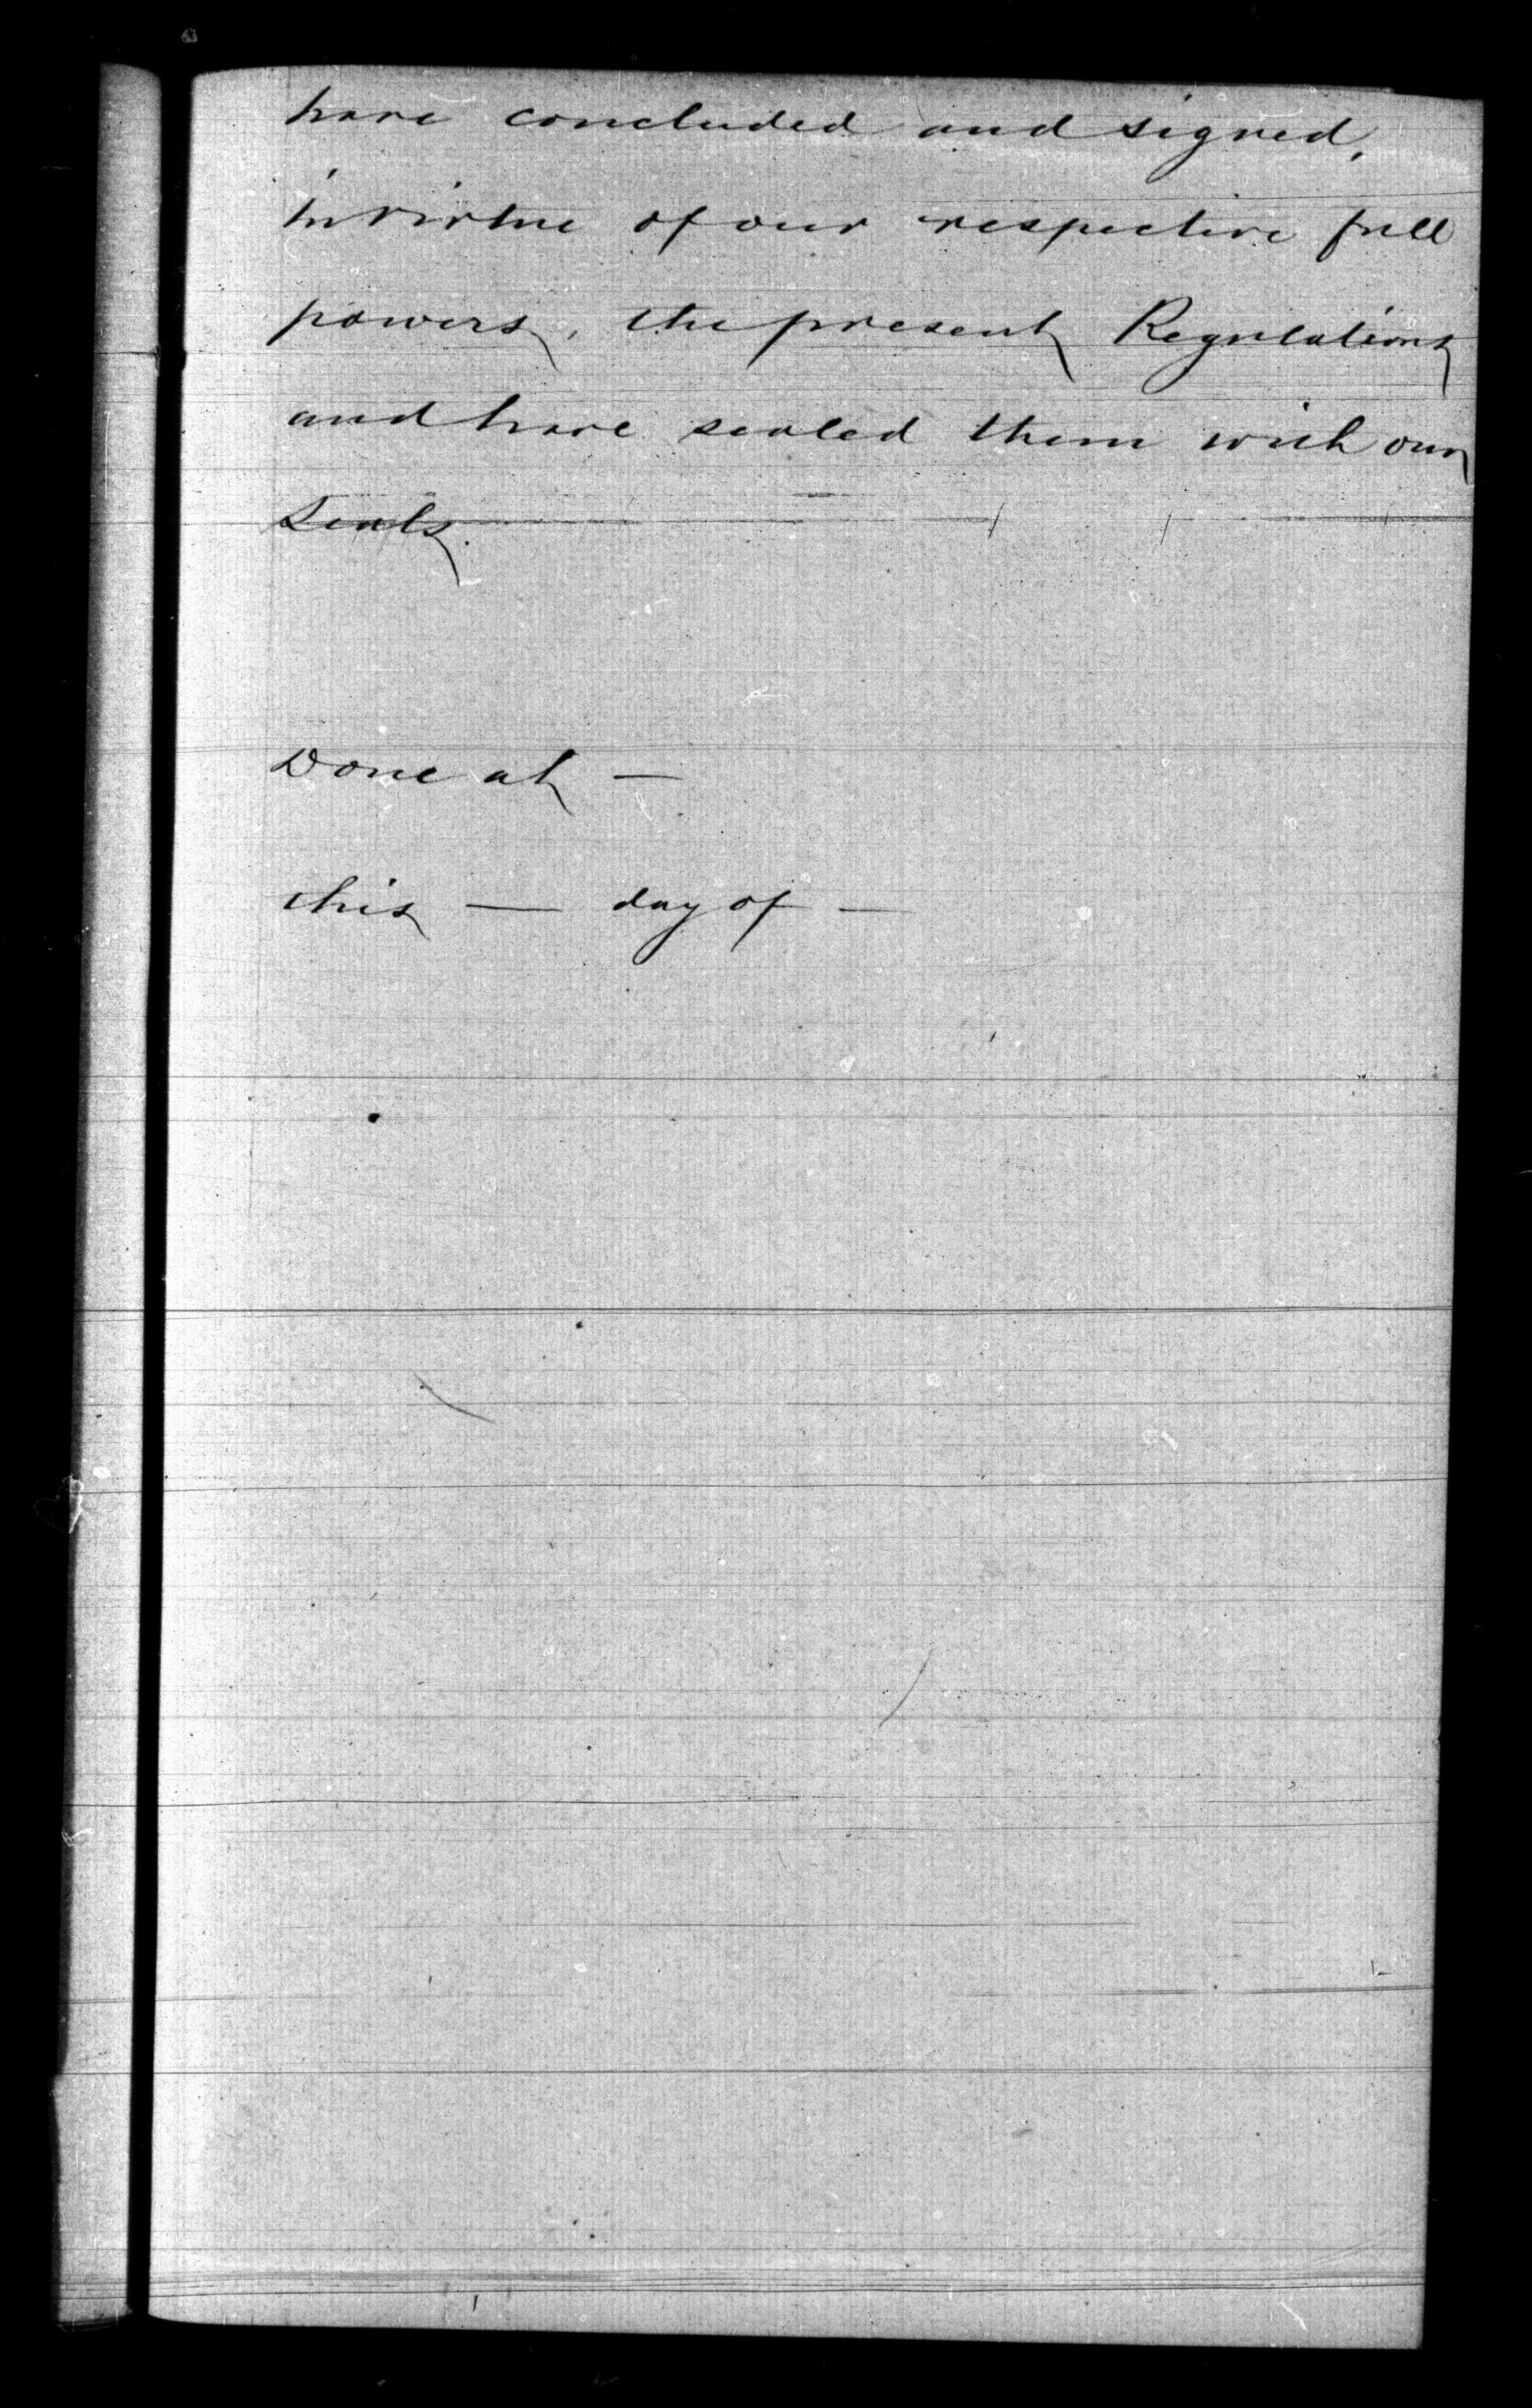 have concluded and signed,
in virtue of our respective full
powers, the present Regulations
and have sealed them with our
Seals.
Done at —
this — day of —